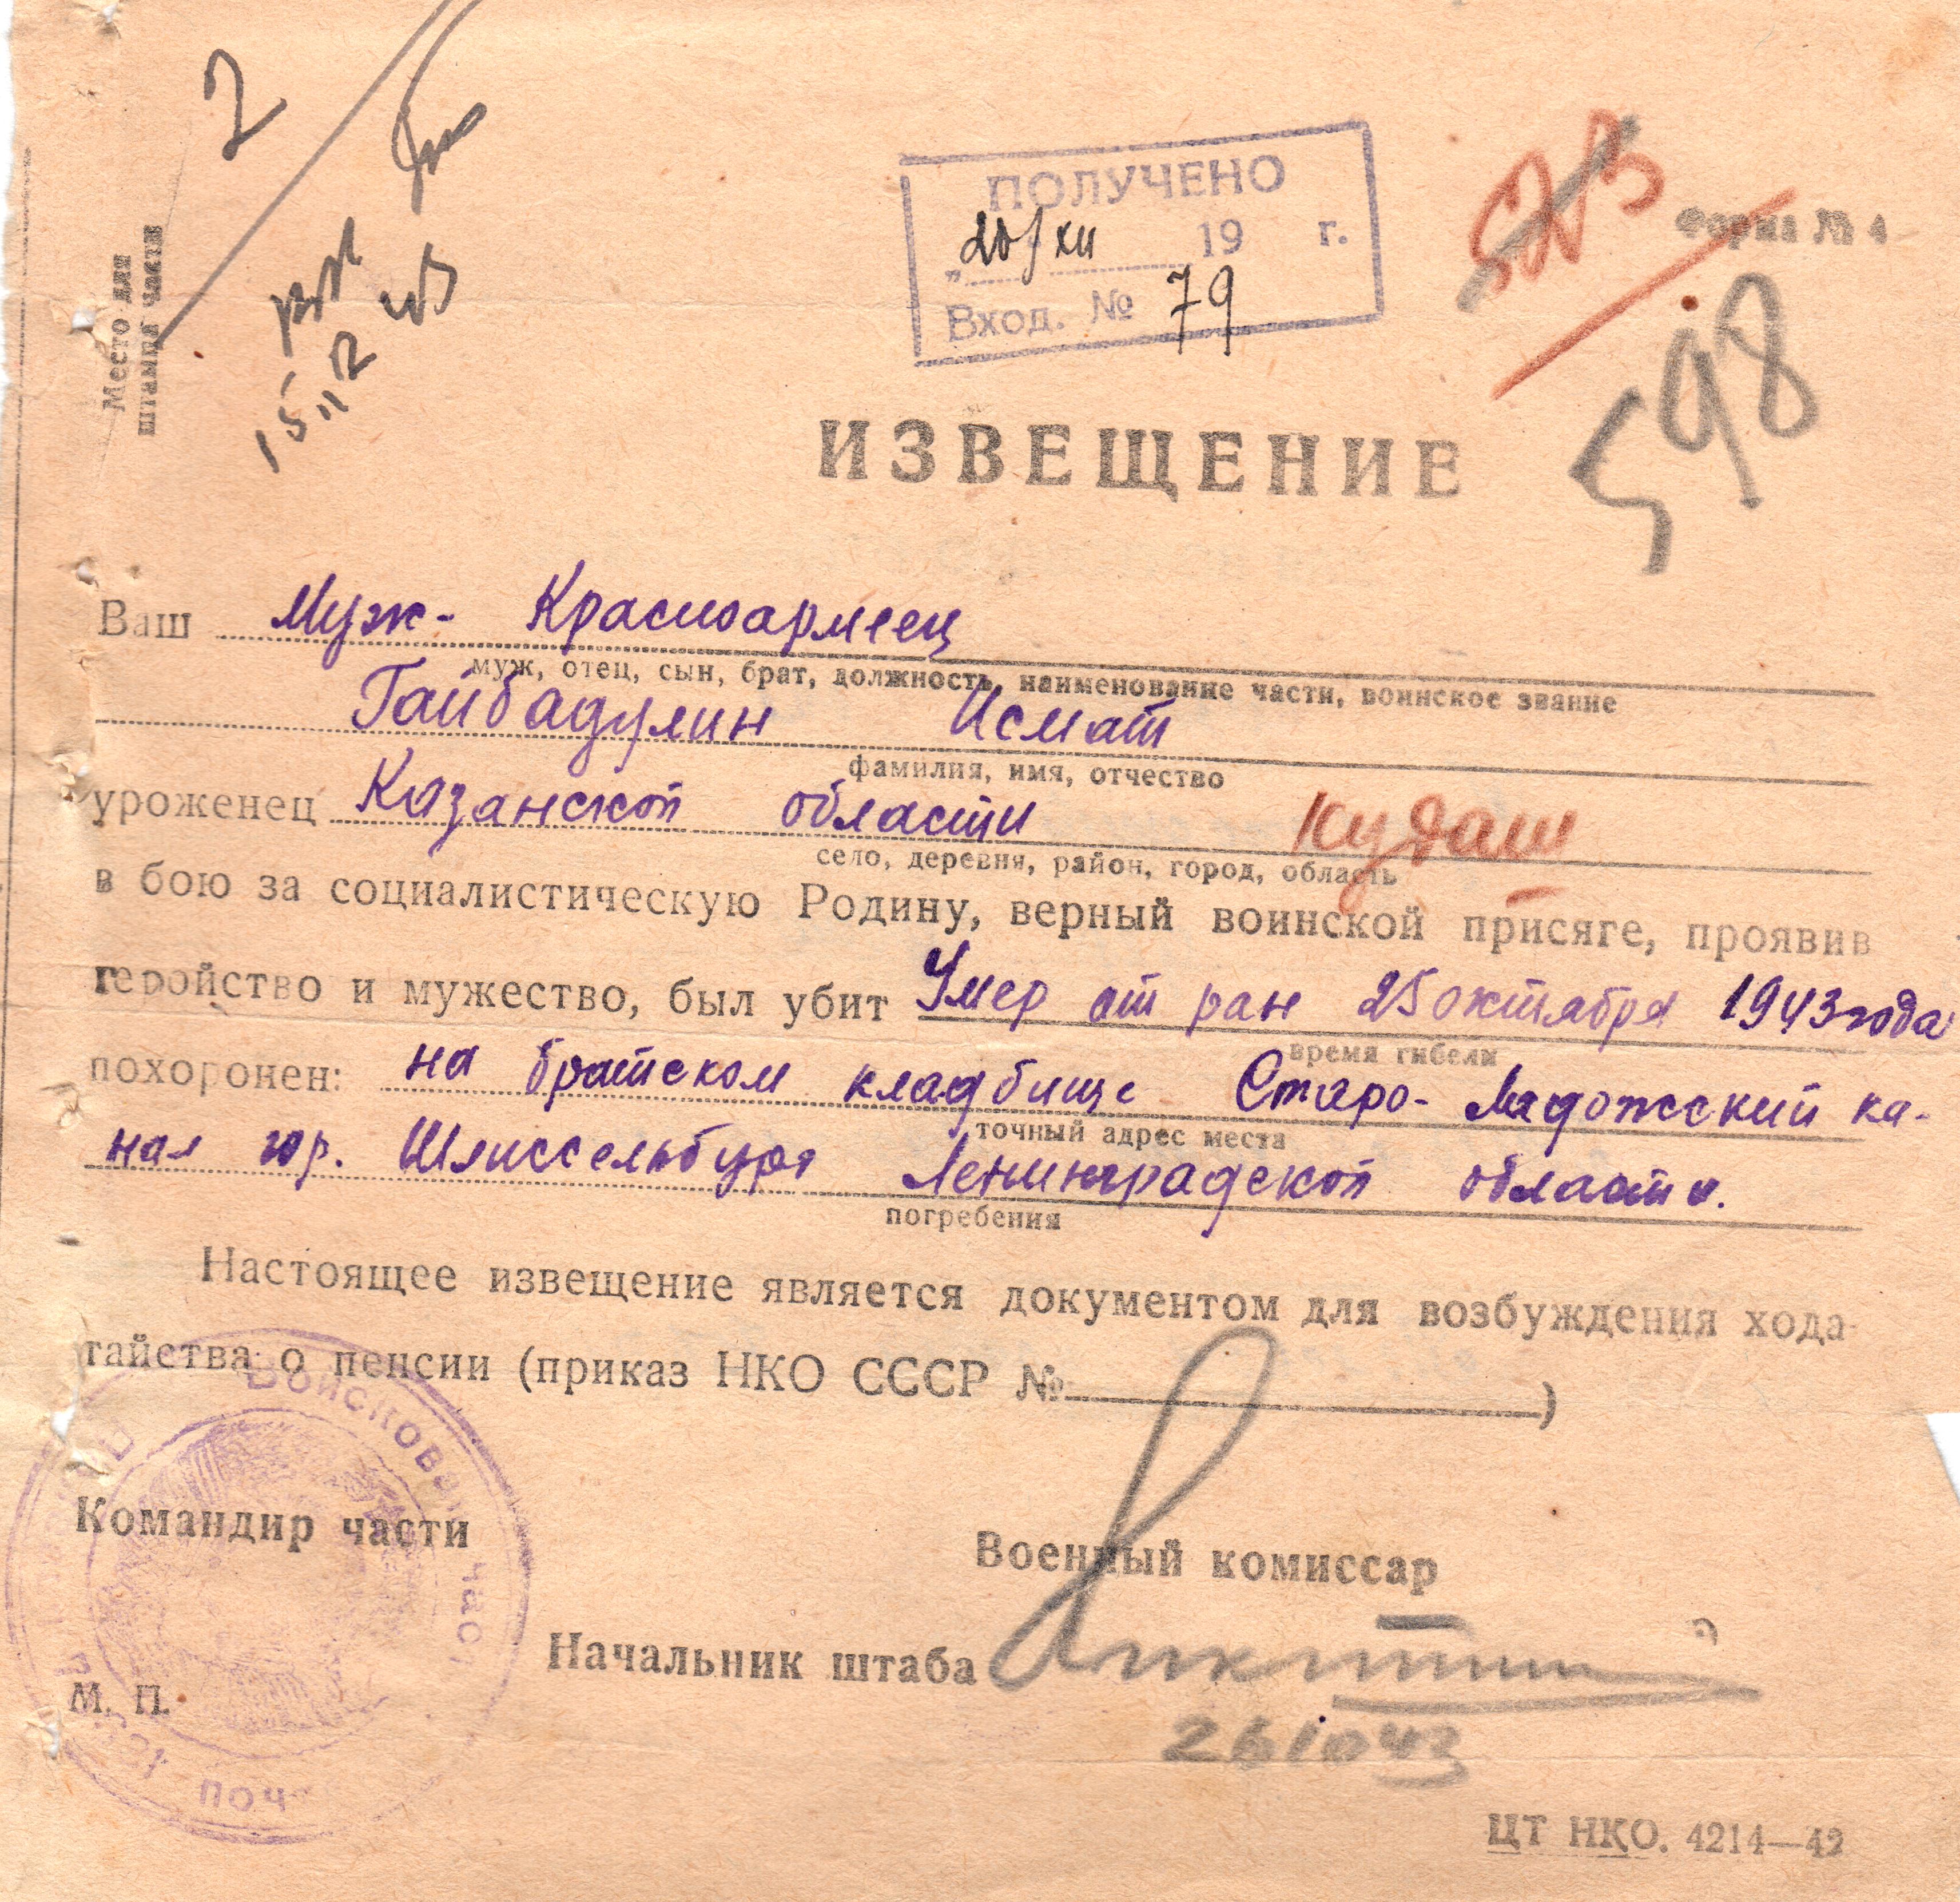 2
15 12 43
Место для
штампа части
ПОЛУЧЕНО
„20/XII 19 г.
Вход. № 79
523
Форма № 4
598
ИЗВЕЩЕНИЕ
Ваш Муж- Красноармеец
муж, отец, сын, брат, должность, наименование части, воинское звание
Гайбадулин Исмат
фамилия, имя, отчество
уроженец Казанской области Кудаш
село, деревня, район, город, область
в бою за социалистическую Родину, верный воинской присяге, проявив
геройство и мужество, был убит Умер от ран 25 октября 1943 года
время гибели
похоронен: на братском кладбище Старо-Ладожский ка-
точный адрес места
нал гор. Шлиссельбург Ленинградской области.
погребения
Настоящее извещение является документом для возбуждения хода-
тайства о пенсии (приказ НКО СССР № )
Войсковая част
Командир части
Военный комиссар
Начальник штаба
М. П.
26 10 43
ЦТ НКО. 4214—42